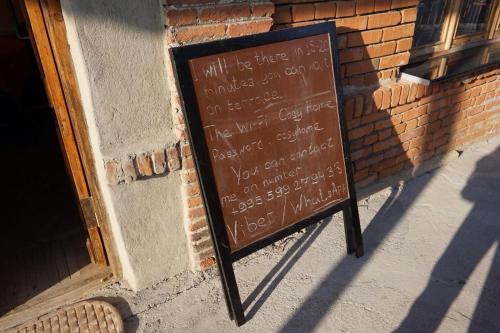 I will be there in 15-20
minutes, you can wait
on terrace.
The Wi-Fi Cosy Home
Password: cosyhome
You can contact
me on number
+995 599 27 96 33
Viber / WhatsApp